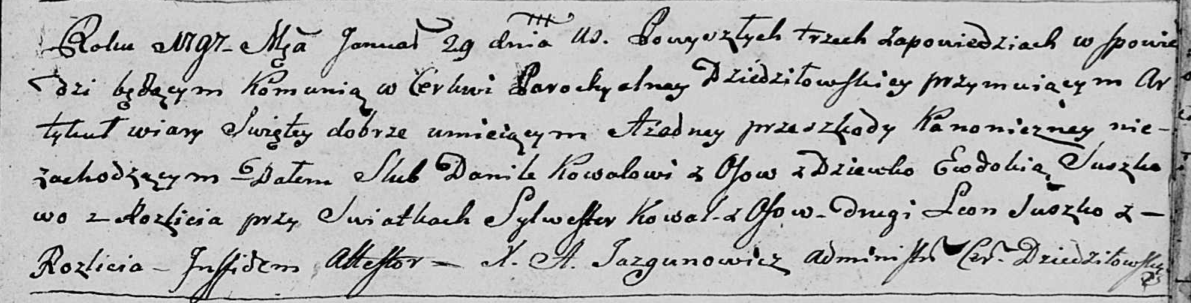 Roku 1797 Mςa Januar 29 dnia us. Po wyszłych trzech zapowiedziach w spowie
dzi będącym Komunią w Cerkwi Parochyalney Dziedziłowskiey przymuiącym Ar
tykuł wiary Swiętey dobrze umieiącym Ażadney przeszkody Kanoniczney nie-
zachodzącym - Dałem Slub Danile Kowalowi z Osow z Dziewko Ewdokią Suszko
wo z Rozlicia przy Swiatkach Sylwester Kowal z Osow - drugi Leon Suszko z -
Rozlicia - In fidem Attestor - X. A. Jazgunowicz Administr Cer. Dziedziłowsky